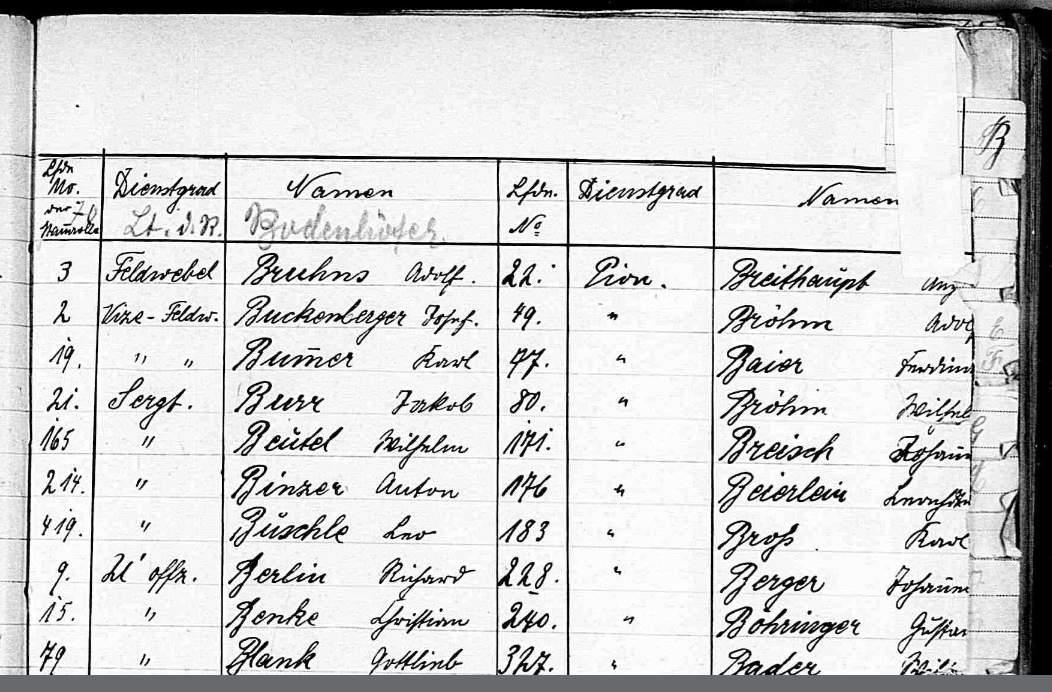 B
Lfdn Dienstgrad Namen Lfdn. Dienstgrad Namen
No. № 
der
Stammrolle Lt. d. R. Bodenhöfer.
3 Feldwebel Bruhns Adolf. 22. Pion. Breithaupt
2 Vize-Feldw. Buckenberger Josef. 49. " Bröhm Adolf
19. " " Bum̄er Karl 77. " Baier Ferdin
21. Sergt. Burr Jakob 80. " Bröhm Wilhel
165 " Beutel Wilhelm 171. " Breisch Johann
214. " Binzer Anton 176 " Beierlein
419. " Büschle Leo 183 " Broß Karl
9. Ut' offz. Berlin Richard 228. " Berger Johann
15. " Benke Christian 240. " Böhringer Gustav
79 " Blank Gottlieb 327. " Bader